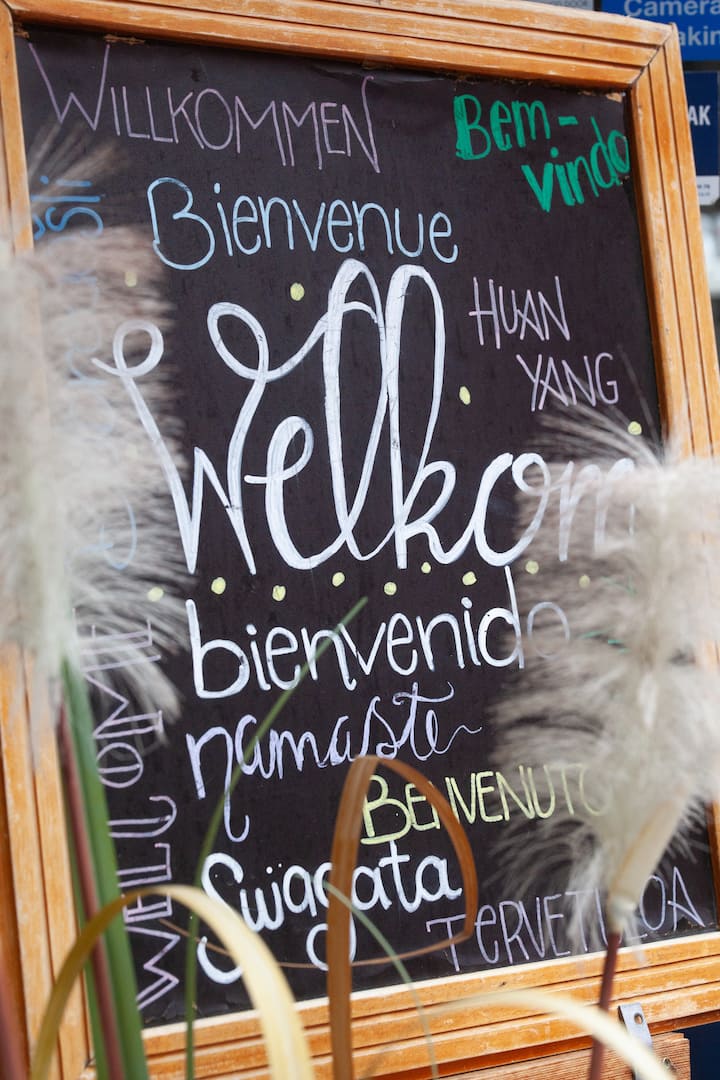 Camera
WILLKOMMEN
Bem-
vindo
AK
Bienvenue
HUAN
YANG
Welkom
bienvenido
namaste
BENVENUTO
Swagata
WELCOME